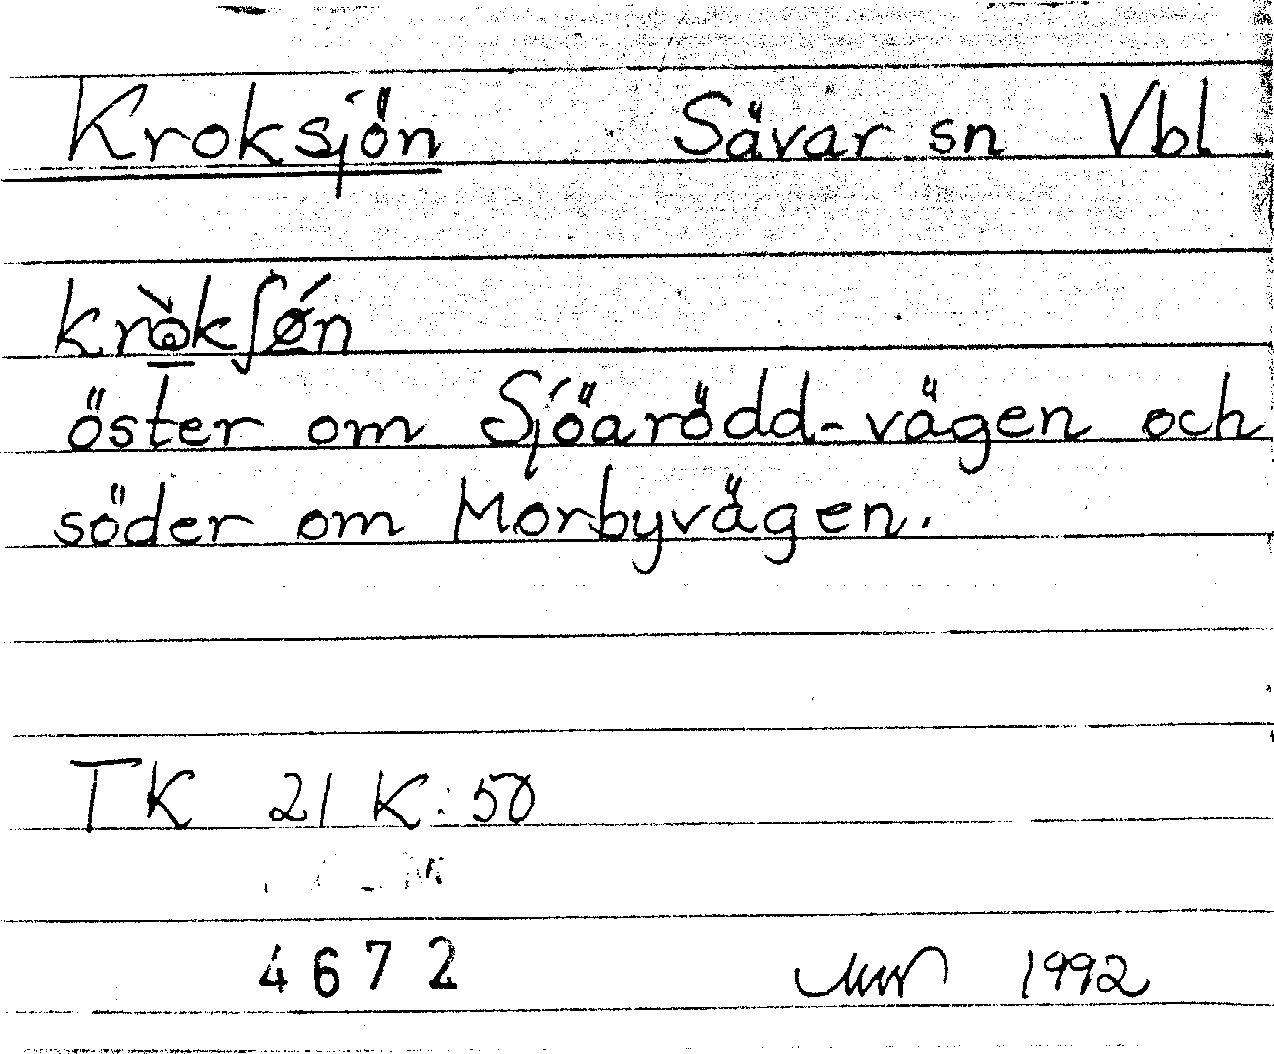 Kroksjön Sävar sn Vbl
kròkʃǿn
öster om Sjöarödd-vägen och
söder om Morbyvägen.
TK 21 K:50
4672 1992